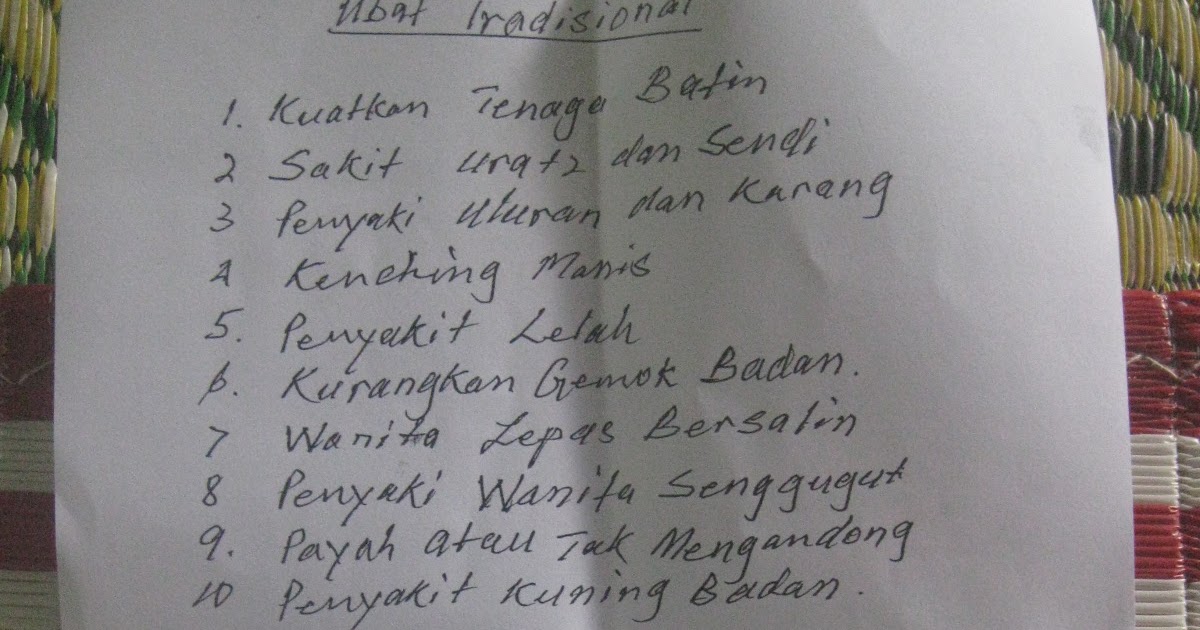 Ubat Tradisional
1. Kuatkan Tenaga Batin
2 Sakit Urat2 dan Sendi
3 Penyaki Uluran dan Karang
4 Kenching Manis
5. Penyakit Lelah
6. Kurangkan Gemok Badan.
7 Wanita Lepas Bersalin
8 Penyaki Wanita Senggugut
9. Payah atau Tak Mengandong
10 Penyakit Kuning Badan.